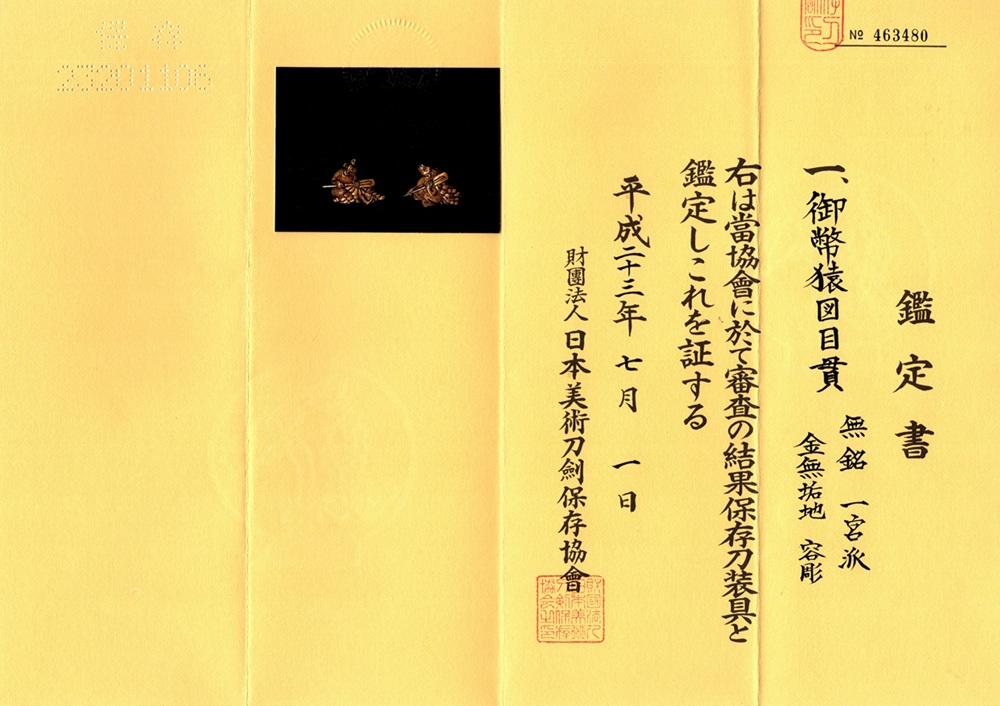 № 463480
鑑定書
一、御幣猿図目貫
無銘 一宮派
金無垢地 容彫
右は當協會に於て審査の結果保存刀装具と
鑑定しこれを証する
平成二十三年 七月 一日
財團法人 日本美術刀劍保存協會
保存
23201106